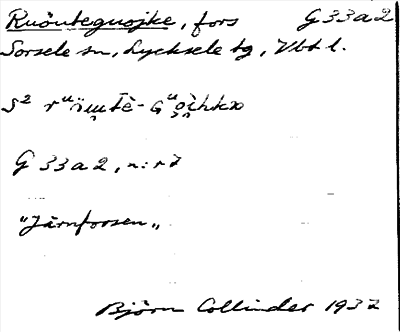 Ruöuteguojke, fors G 33 a 2
Sorsele sn, Lycksele tg, Vbt l.
G 33 a 2, n:r 7
"Järnforsen"
Björn Collinder 1932